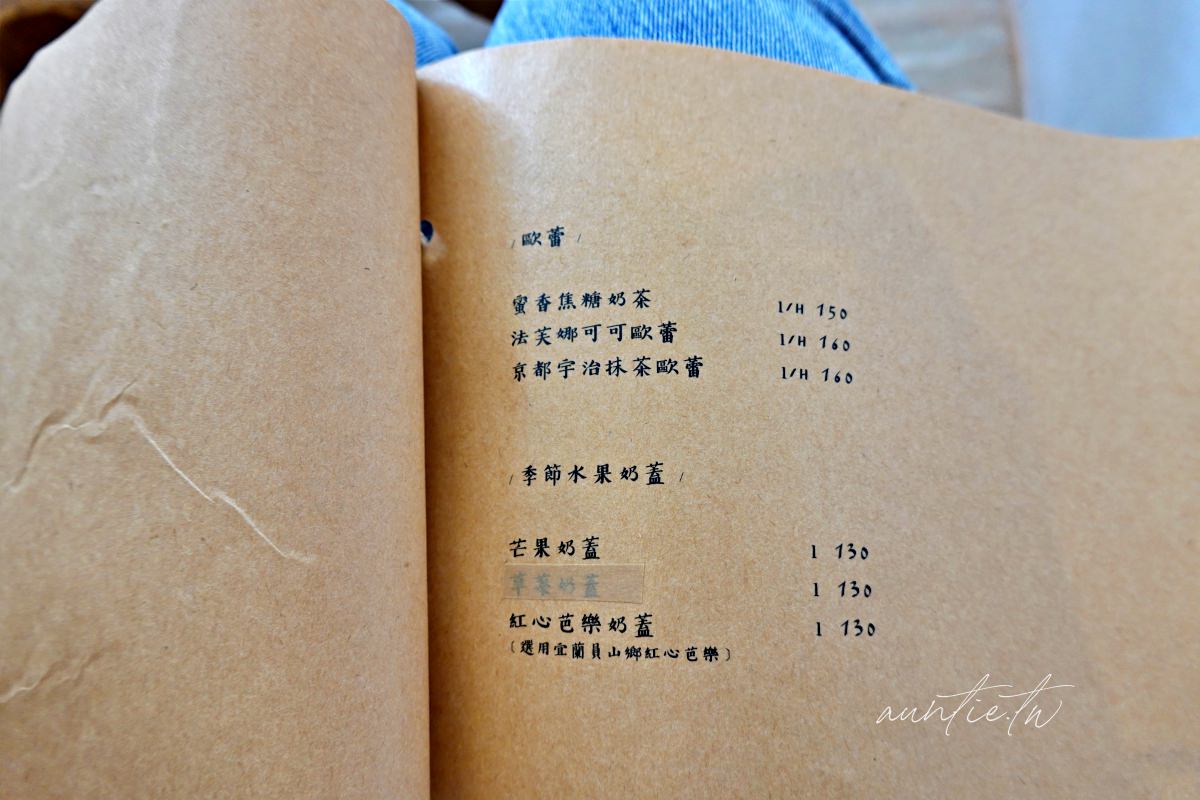 / 歐蕾 /
蜜香焦糖奶茶 I/H 150
法芙娜可可歐蕾 I/H 160
京都宇治抹茶歐蕾 I/H 160
/ 季節水果奶蓋 /
芒果奶蓋 I 130
草莓奶蓋 I 130
紅心芭樂奶蓋 I 130
(選用宜蘭員山鄉紅心芭樂)
auntie.tw